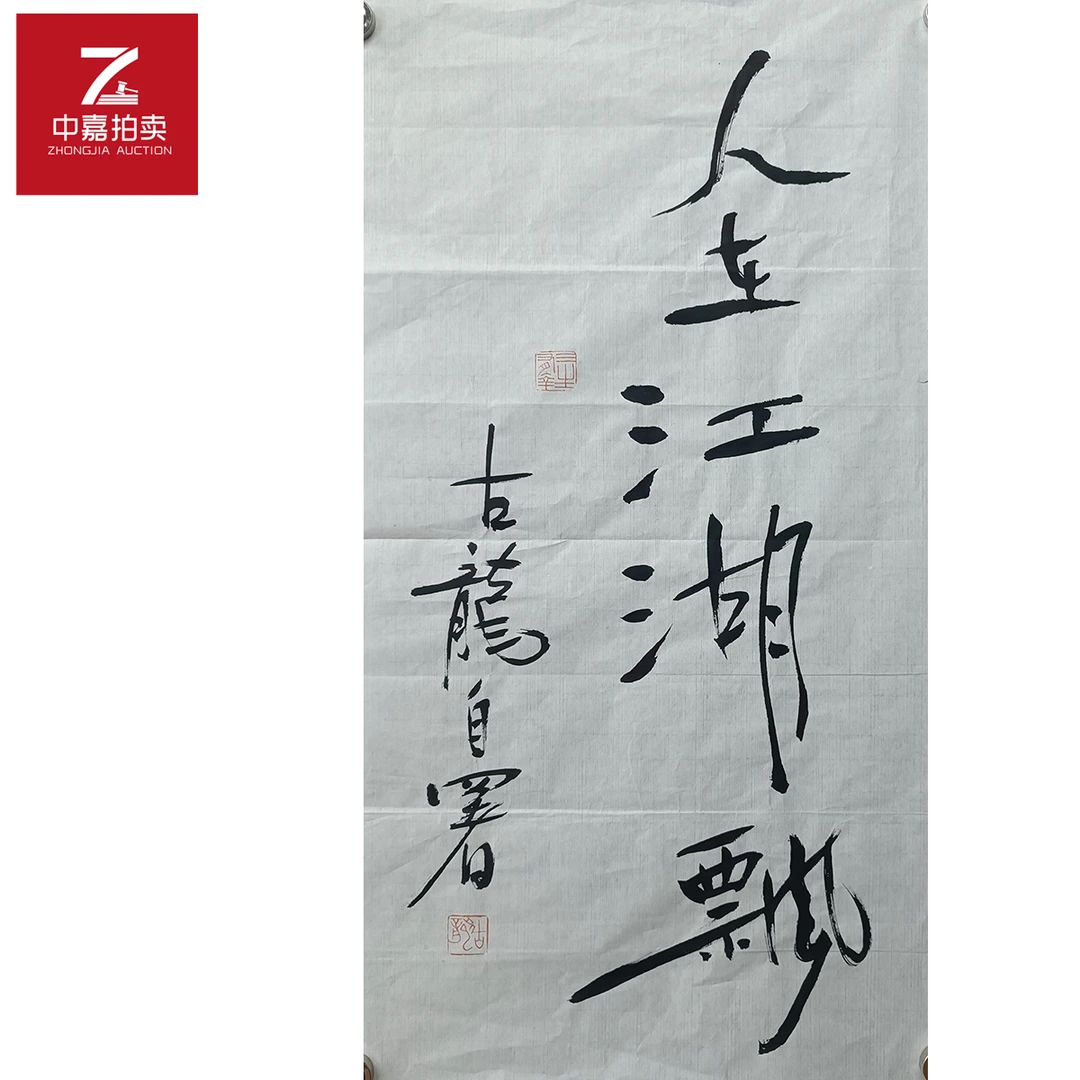 中嘉拍卖
ZHONGJIA AUCTION
人在江湖飄
古龍自署